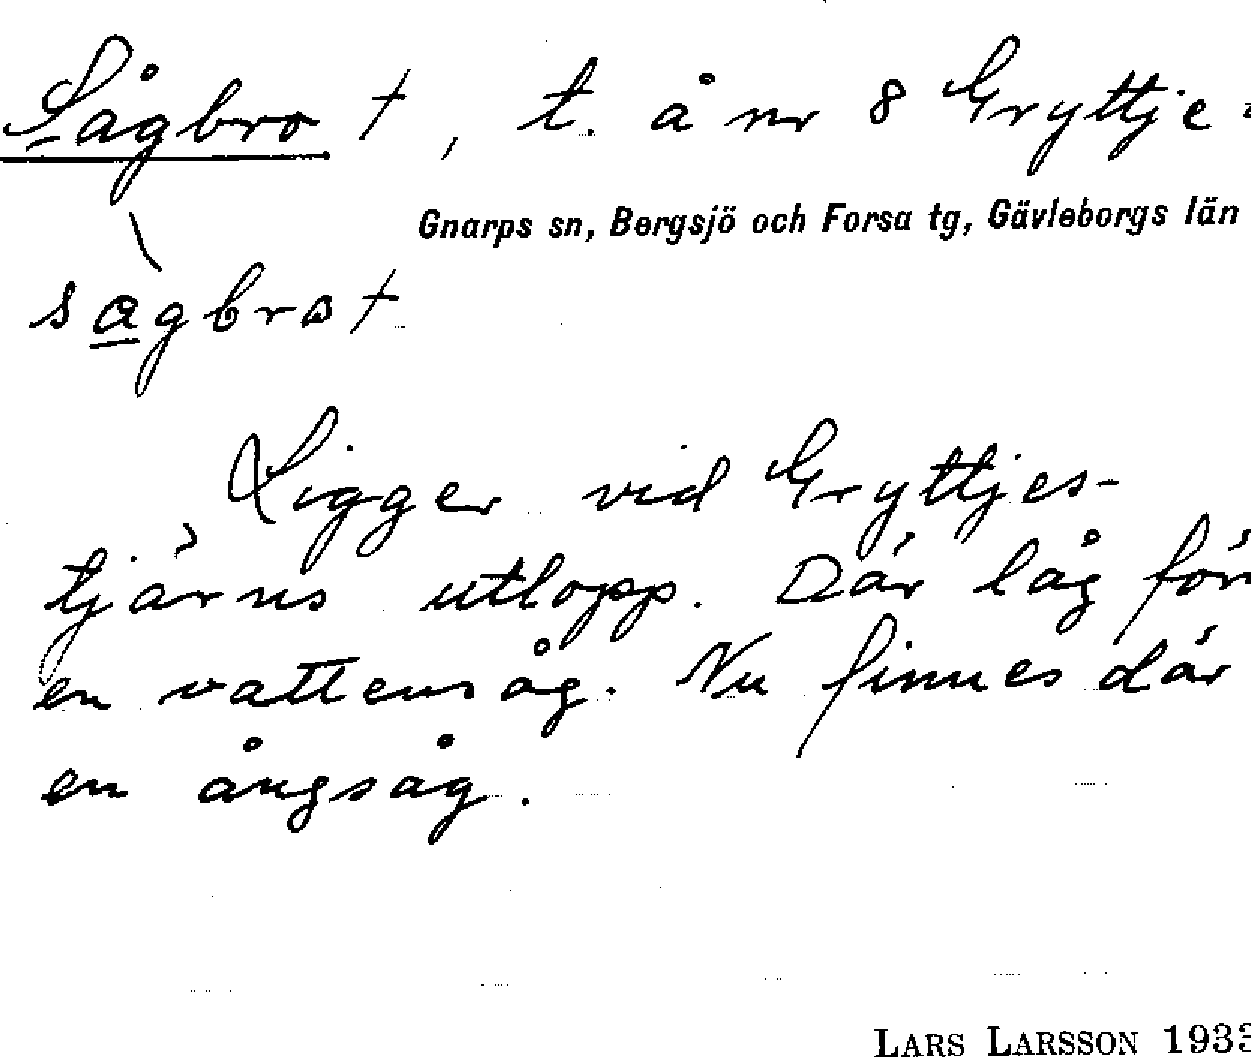 Sågbrot, t. å nr 8 Gryttje
Gnarps sn, Bergsjö och Forsa tg, Gävleborgs län
sågbrot
Ligger vid Gryttjes-
tjärns utlopp. Där låg förr
en vattensåg. Nu finnes där
en ångsåg.
LARS LARSSON 1933